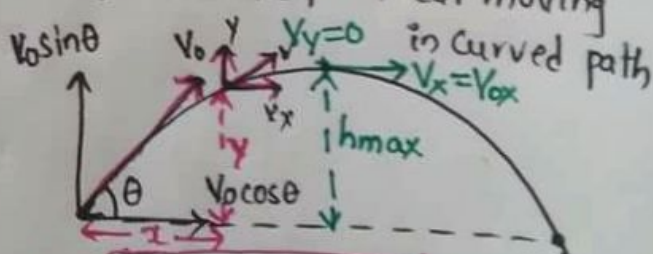 moving
in curved path
V₀sinθ
V₀
y
v
Vy=0
Vx=V₀x
Vx
y
hmax
θ
V₀cosθ
x